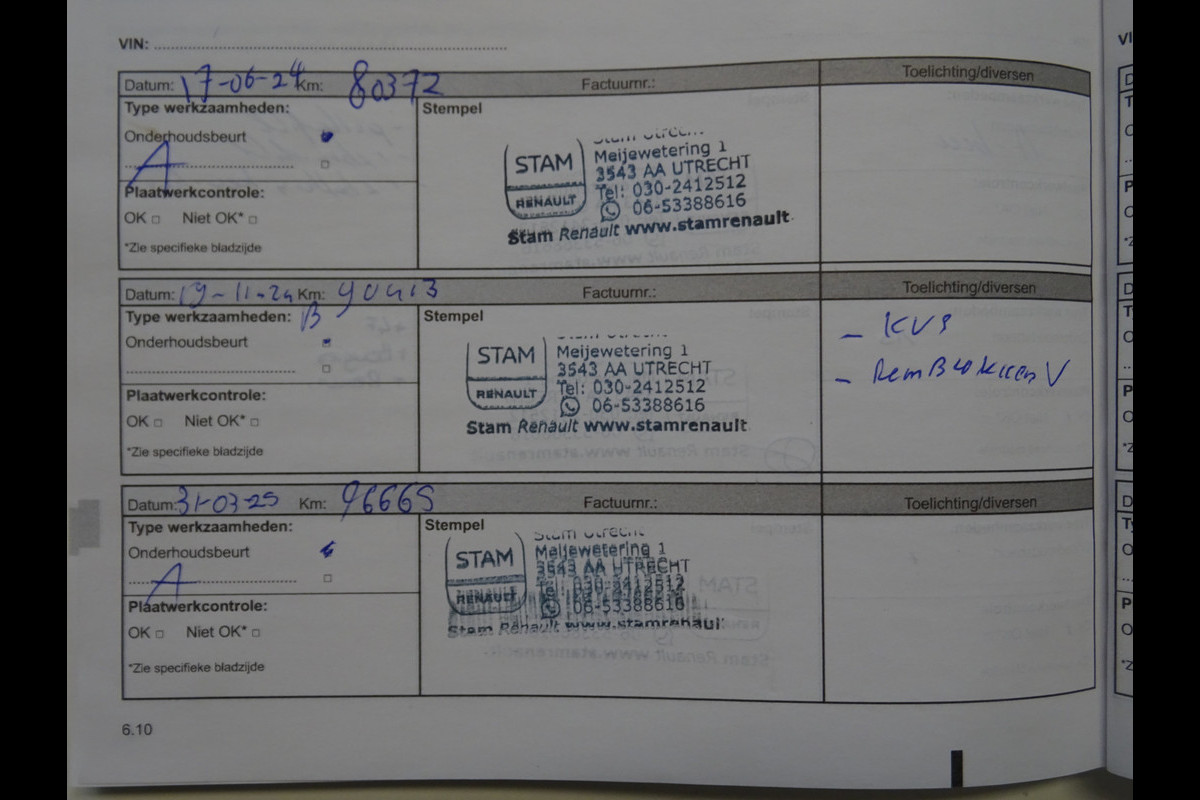 VIN:
Datum: 17-06-24 Km: 80372 Factuurnr.: Toelichting/diversen
Type werkzaamheden: Stempel
Onderhoudsbeurt
A
Plaatwerkcontrole:
OK □ Niet OK* □
*Zie specifieke bladzijde
Stam Utrecht
STAM Meijewetering 1
3543 AA UTRECHT
Tel: 030-2412512
RENAULT 06-53388616
Stam Renault www.stamrenault
Datum: 19-11-24 Km: 90413 Factuurnr.: Toelichting/diversen
Type werkzaamheden: B Stempel
Onderhoudsbeurt
Plaatwerkcontrole:
OK □ Niet OK* □
*Zie specifieke bladzijde
STAM Meijewetering 1
3543 AA UTRECHT
Tel: 030-2412512
RENAULT 06-53388616
Stam Renault www.stamrenault
- KVS
- RemBlokken V
Datum: 31-03-25 Km: 96665 Factuurnr.: Toelichting/diversen
Type werkzaamheden: Stempel
Onderhoudsbeurt
A
Plaatwerkcontrole:
OK □ Niet OK* □
*Zie specifieke bladzijde
Stam Utrecht
STAM Meijewetering 1
3543 AA UTRECHT
Tel: 030-2412512
RENAULT 06-53388616
Stam Renault www.stamrenault
6.10